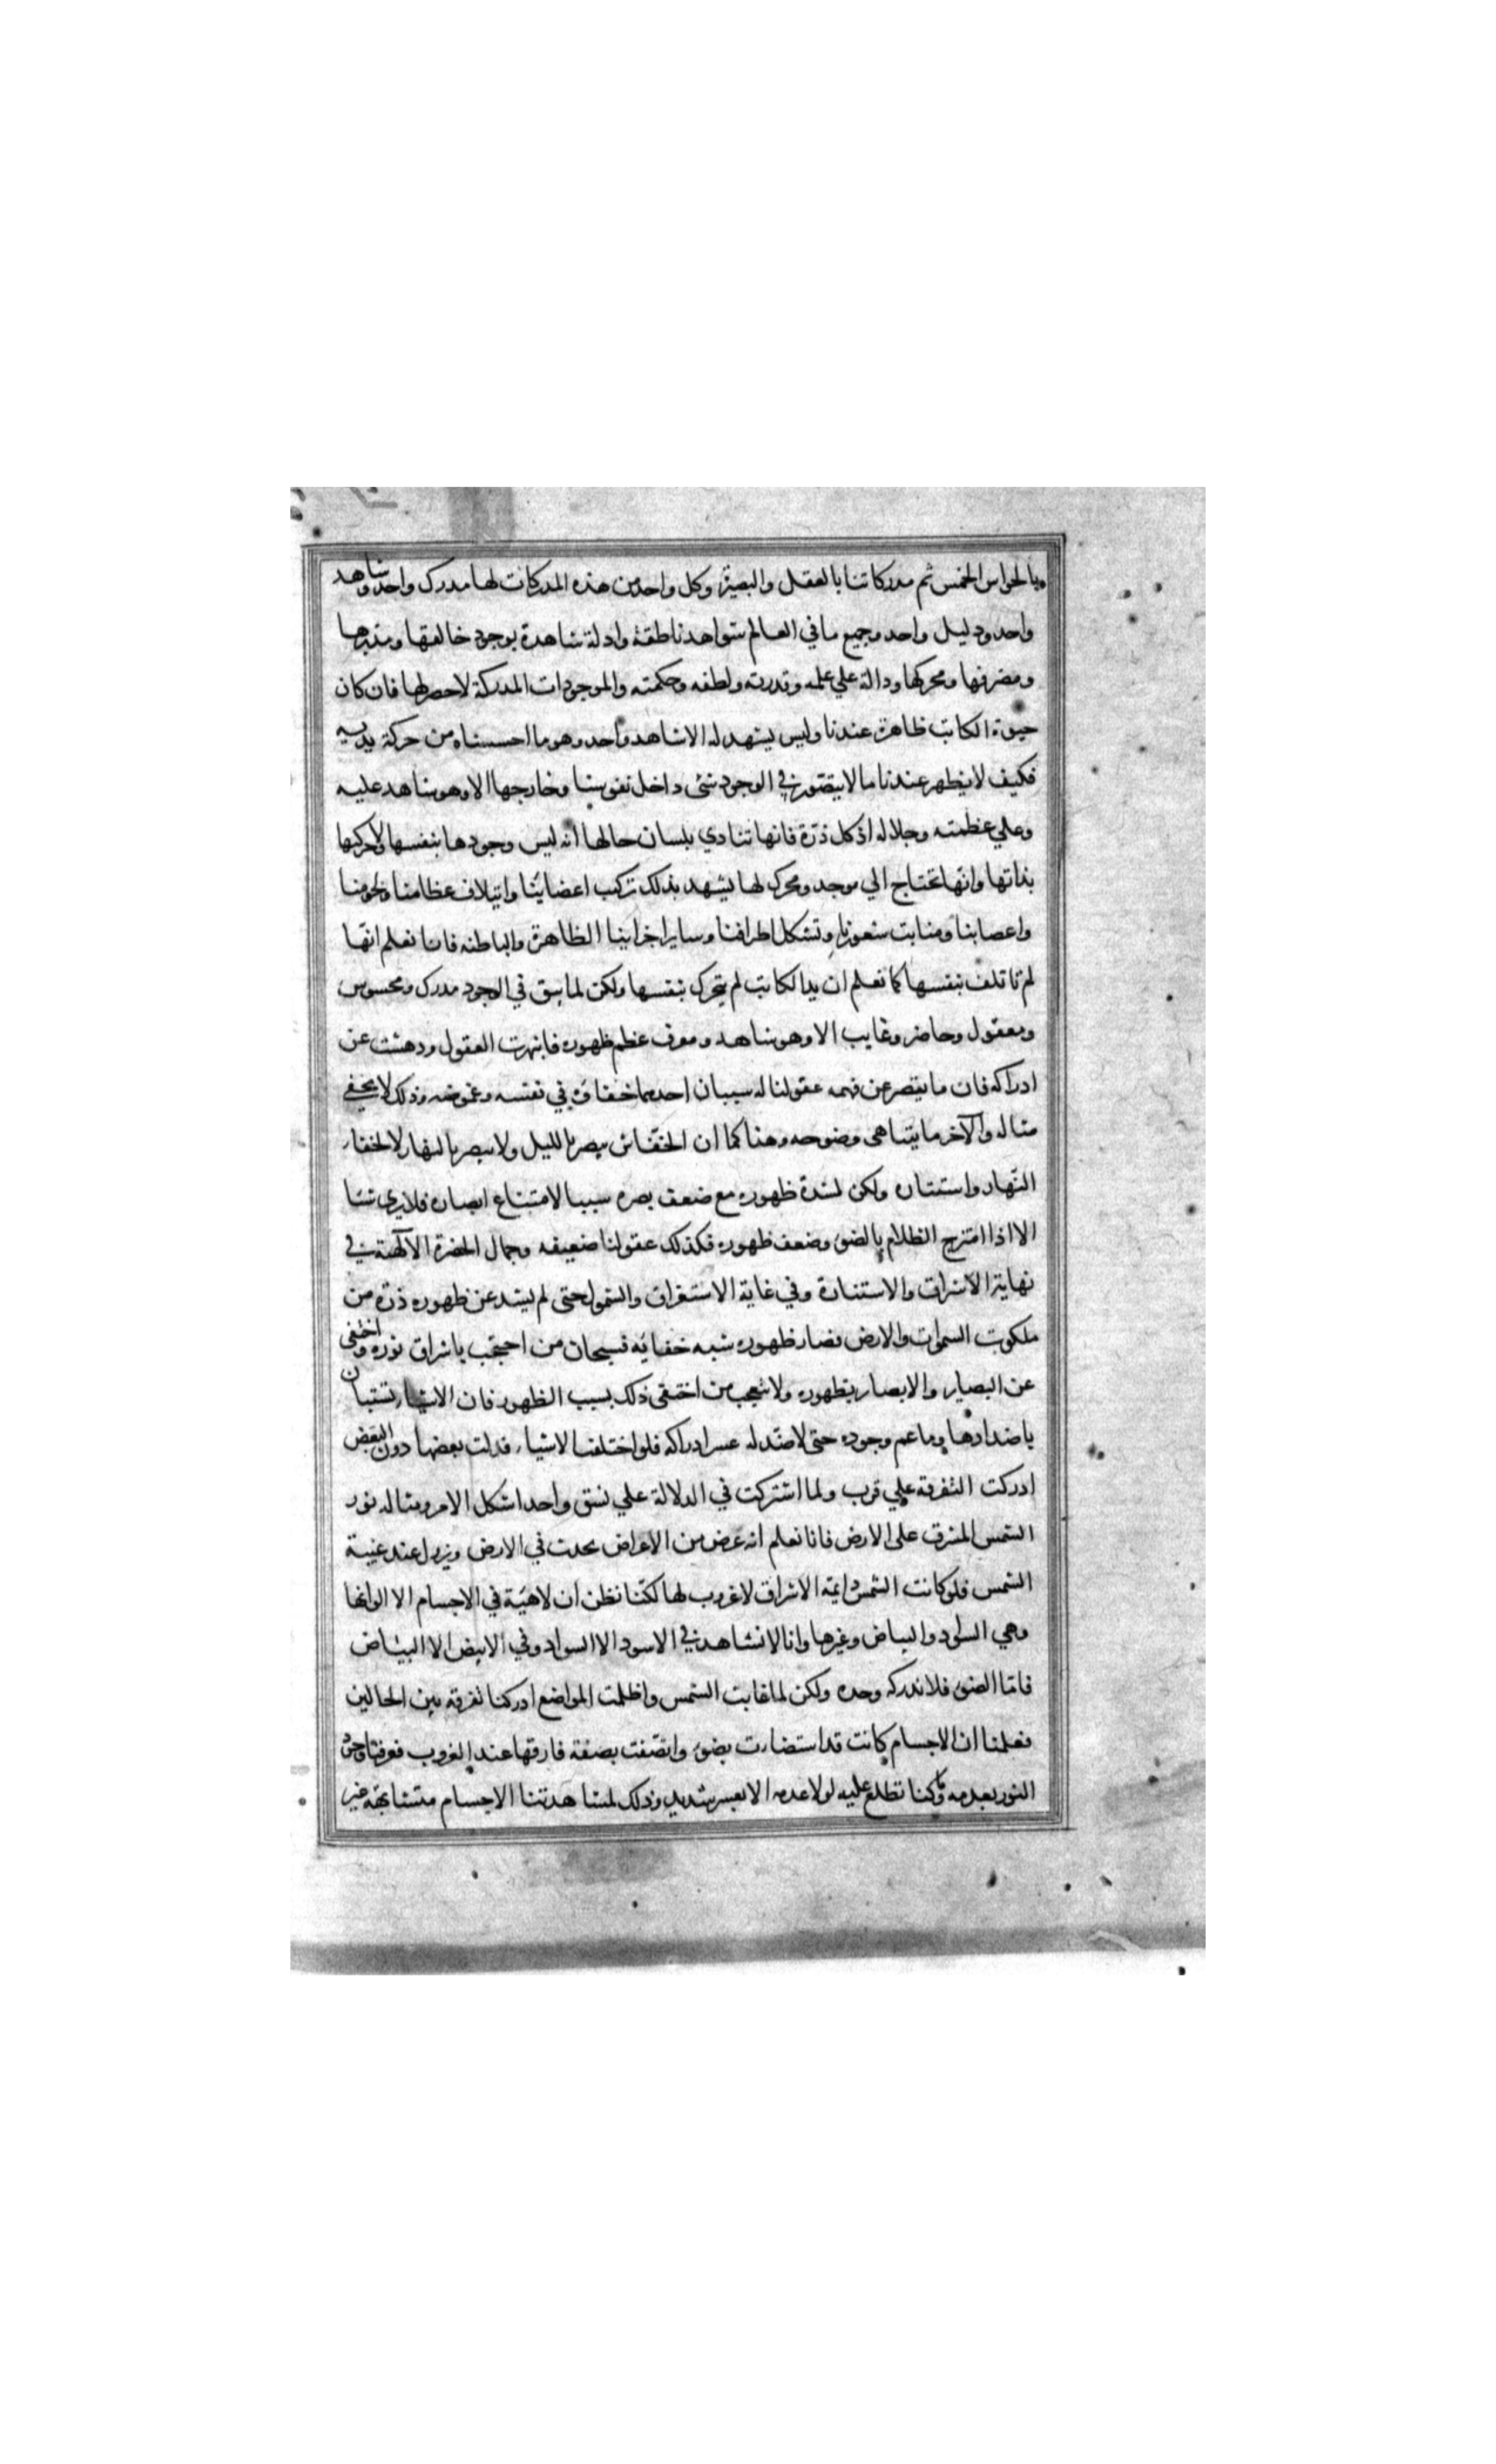 بالحواس الخمس ثم مدركاتنا بالعقل والبصيرة وكل واحد من هذه المدركات لها مدرك واحد وشاهد
واحد ودليل واحد وجميع ما في العالم شواهد ناطقة وادلة شاهدة بوجود خالقها ومدبرها
ومصرفها ومحركها ودالة علي علمه وقدرته ولطفه وحكمته والموجودات المدركة لا حصر لها فان كان
حيوة الكاتب ظاهرة عندنا وليس يشهد له الا شاهد واحد وهو ما احسسناه من حركة يديه
فكيف لا يظهر عندنا ما لا يتصور في الوجود شئ داخل نفوسنا وخارجها الا وهو شاهد عليه
وعلي عظمته وجلاله اذ كل ذرة فانها تنادي بلسان حالها انه ليس وجودها بنفسها ولا حركتها
بذاتها وانها تحتاج الي موجد ومحرك لها يشهد بذلك تركب اعضاينا وايتلاف عظامنا ولحومنا
واعصابنا ومنابت شعورنا وتشكل اطرافنا وساير اجزاينا الظاهرة والباطنه فانا نعلم انها
لم تاتلف بنفسها كما نعلم ان يد الكاتب لم يتحرك بنفسها ولكن لما لم يبق في الوجود مدرك ومحسوس
ومعقول وحاضر وغايب الا وهو شاهد ومعرف عظم ظهوره فانبهرت العقول ودهشت عن
ادراكه فان ما يقصر عن فهمه عقولنا له سببان احدهما خفاؤه في نفسه وغموضه وذلك لا يخفي
مثاله والآخر ما يتناهى وضوحه وهذا كما ان الخفاش يبصر بالليل ولا يبصر بالنهار لا لخفاء
النهار واستتاره ولكن لشدة ظهوره مع ضعف بصره سببا لامتناع ابصاره فلا يرى شيئا
الا اذا امتزج الظلام بالضوء وضعف ظهوره فكذلك عقولنا ضعيفه وجمال الحضرة الآلهية في
نهاية الاشراق والاستنارة وفي غاية الاستغراق والشمول حتى لم يشذ عن ظهوره ذرة من
ملكوت السموات والارض فصار ظهوره شبه خفايه فسبحان من احتجب باشراق نوره واختفى
عن البصاير والابصار بظهوره ولا تتعجب من اختفى ذلك بسبب الظهور فان الاشياء تستبان
باضدادها وما عم وجوده حتى لا ضد له عسر ادراكه فلو اختلفت الاشياء فدلت بعضها دون البعض
ادركت التفرقة علي قرب ولما اشتركت في الدلالة علي نسق واحد اشكل الامر ومثاله نور
الشمس المشرق على الارض فانا نعلم انه عرض من الاعراض يحدث في الارض ويزول عند غيبة
الشمس فلو كانت الشمس دايمة الاشراق لا غروب لها لكنا نظن ان لا هيئة في الاجسام الا الوانها
وهي السواد والبياض وغيرها وانا لا نشاهد في الاسود الا السواد وفي الابيض الا البياض
فاما الضوء فلا ندركه وحده ولكن لما غابت الشمس واظلمت المواضع ادركنا تفرقة بين الحالين
فعلمنا ان الاجسام كانت قد استضاءت بضوء واتصفت بصفة فارقتها عند الغروب فعرفنا وجود
النور بعدمه وما كنا نطلع عليه لولا عدمه الا بعسر شديد وذلك لمشاهدتنا الاجسام متشابهة غير